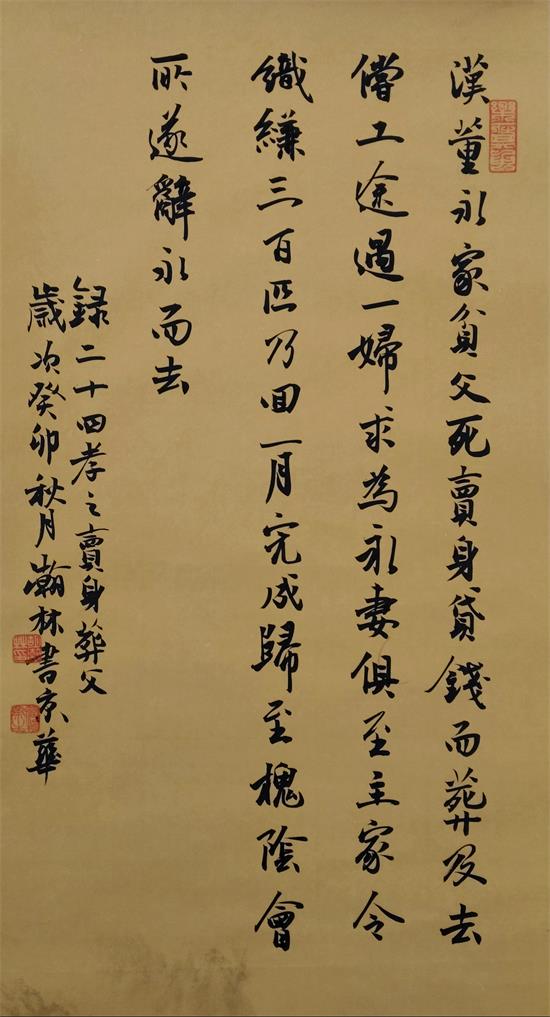 漢董永家貧父死賣身貸錢而葬及去
償工途遇一婦求為永妻俱至主家令
織縑三百匹乃回一月完成歸至槐陰會
所遂辭永而去
錄二十四孝之賣身葬父
歲次癸卯秋月瀚林書京華